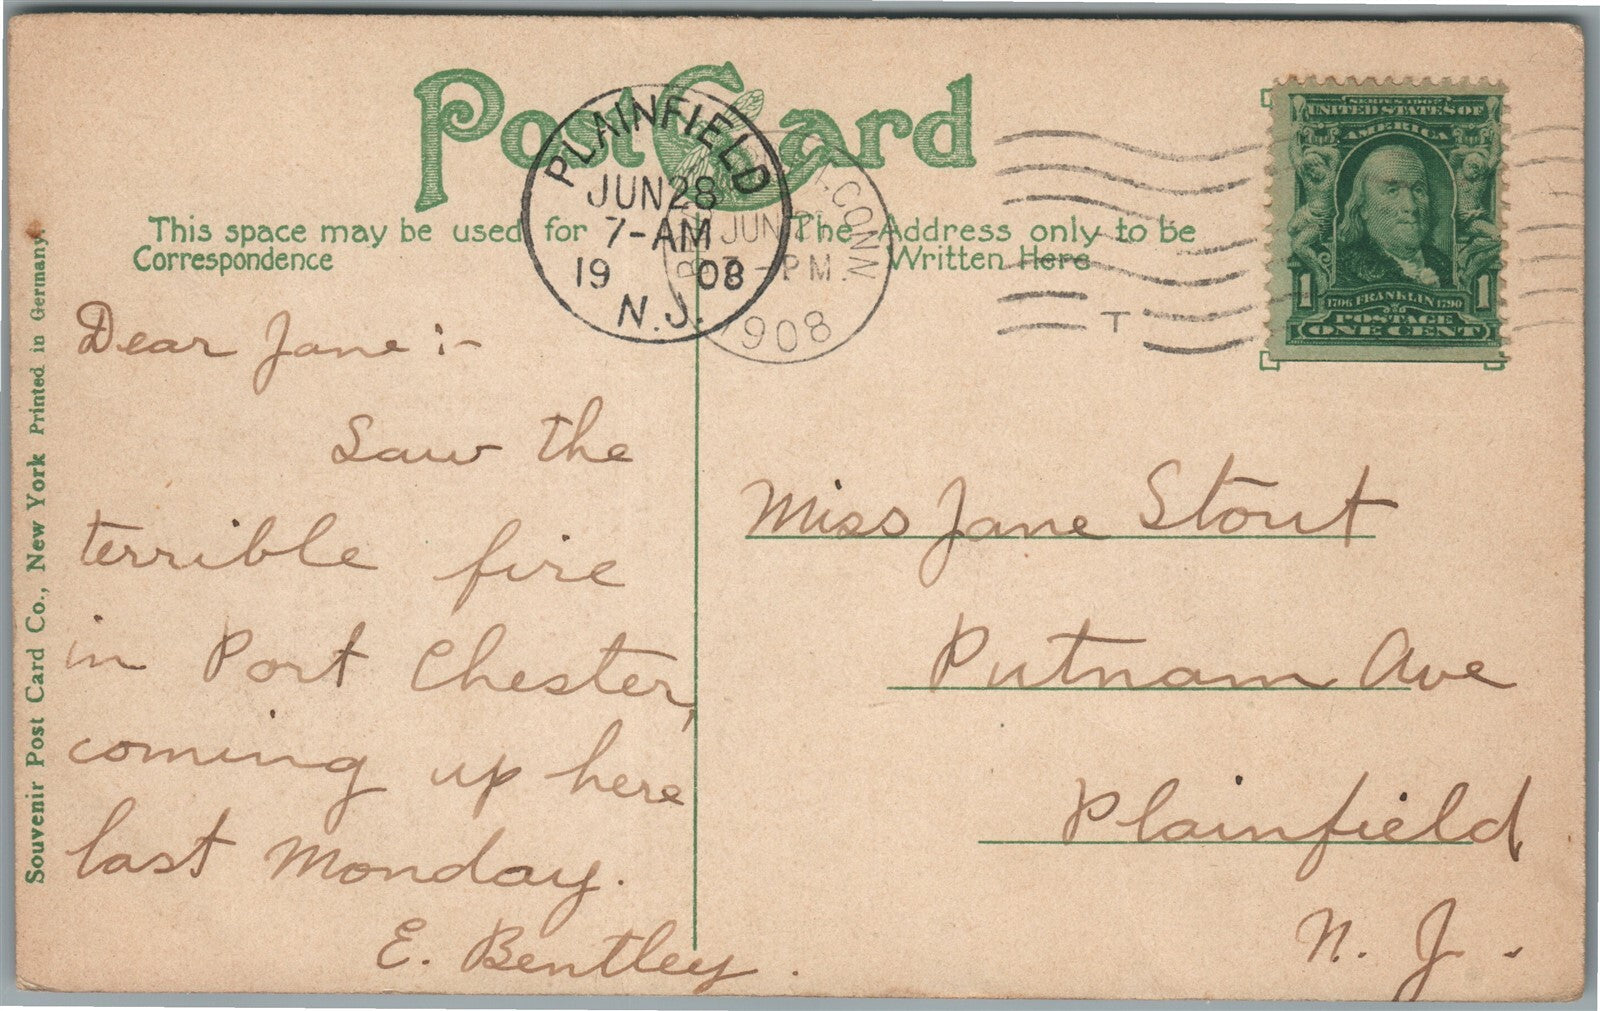 Post Card
This space may be used for
Correspondence
The Address only to be
Written Here
PLAINFIELD
JUN 28
7-AM
19 08
N.J.
CONN
JUN
7-PM.
1908
T
SERIES 1902
UNITED STATES OF
AMERICA
1 1
1706 FRANKLIN 1790
POSTAGE
ONE CENT
Souvenir Post Card Co., New York Printed in Germany.
Dear Jane :-
Saw the
terrible fire
in Port Chester,
coming up here
last Monday.
E. Bentley.
Miss Jane Stout
Putnam Ave
Plainfield,
N. J.